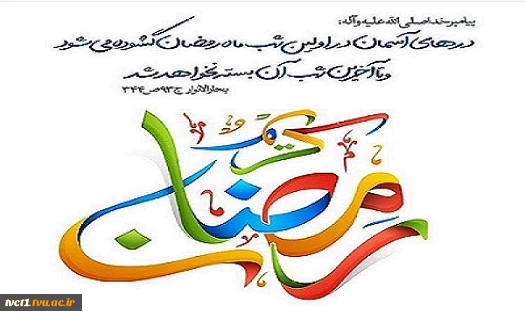 پیامبر خدا صلی الله علیه و آله:
درهای آسمان در اولین شب ماه رمضان گشوده می شود
و تا آخرین شب آن بسته نخواهد شد
بحارالانوار ج۹۳ ص ۳۴۴
رمضان کریم
tvct1.tvu.ac.ir